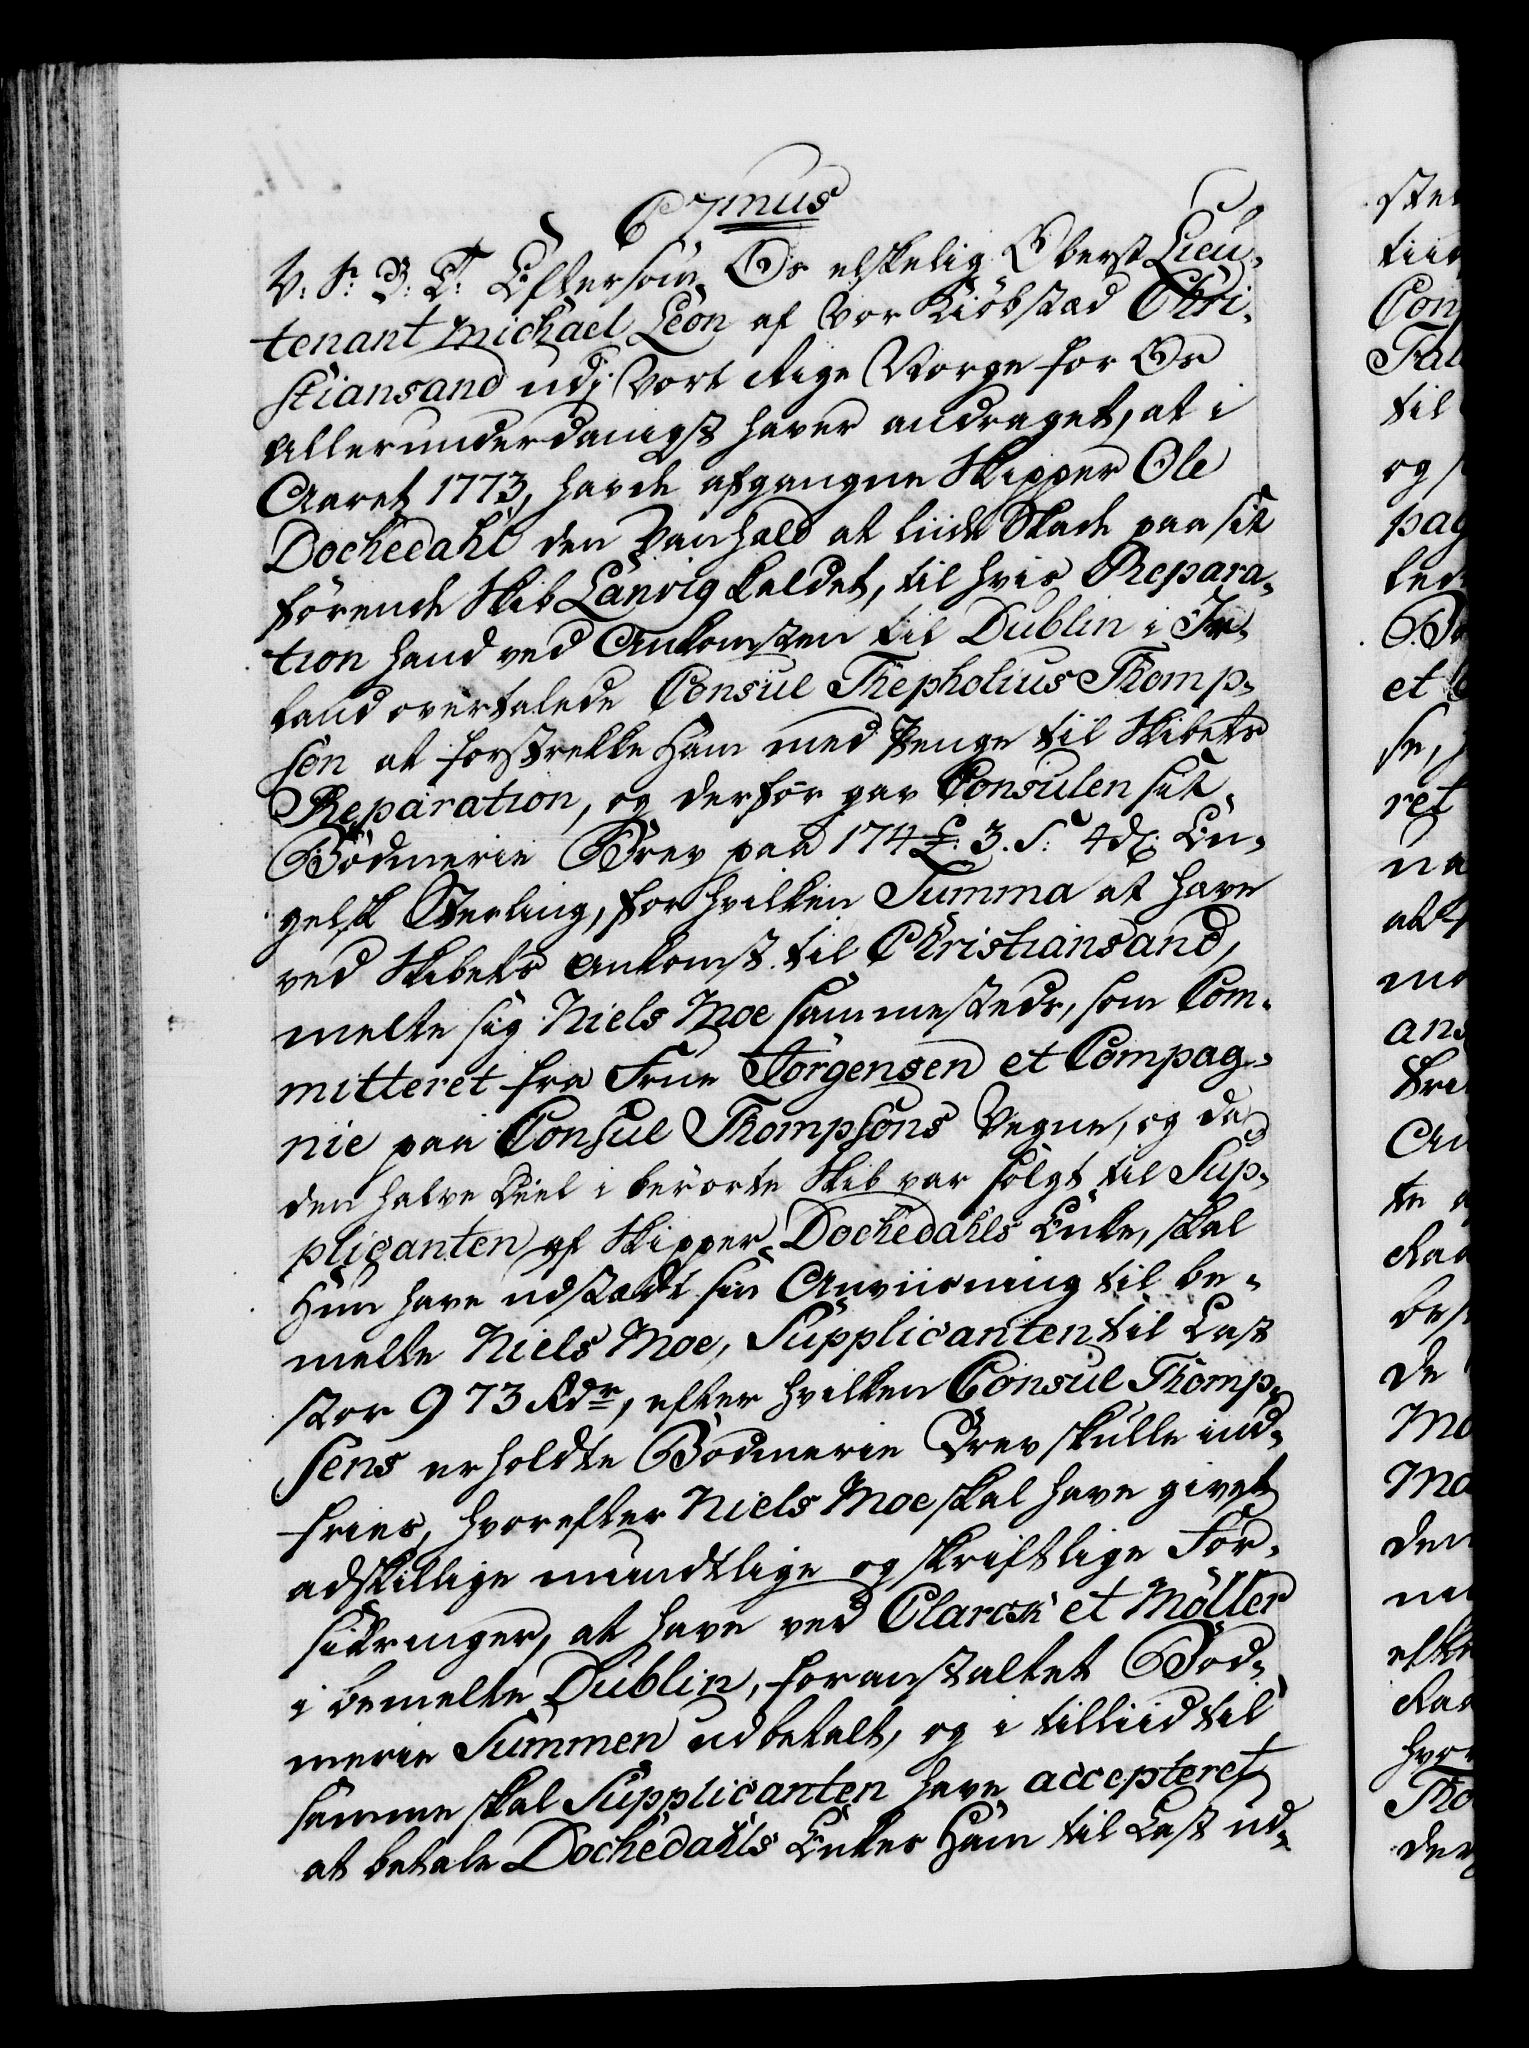 C7mus
V: S: B: T: Eftersom Os elskelig Oberst Lieu-
tenant Michael Leon af Vor Kiöbstad Chri-
stiansand udj Vort Rige Norge for Os
allerunderdanigst haver andraget, at i
Aaret 1773, havde afgangne Skipper Ole
Dochedahl den Vanheld at liide Skade paa sit
förende Skib Lanvig kaldet, til hvis Repara-
tion hand ved Ankomsten til Dublin i Ir-
land overtalede Consul Thepholius Thomp-
son at forstrekke Ham med Penge til Skibets
Reparation, og derfor gav Consulen sit
Bödmerie Brev paa 174 £: 3. S: 4 d: En-
gelsk Sterling, for hvilken Summa at have
ved Skibets Ankomst til Christiansand,
melte sig Niels Moe sammesteds, som Com-
mitteret fra Frue Jörgensen et Compag-
nie paa Consul Thompsons Vegne, og da
den halve Deel i berörte Skib var solgt til Sup-
plicanten af Skipper Dochedahls Enke, skal
Hun have udstædt sin Anviisning til be-
melte Niels Moe, Supplicanten til Last
stor 973 Rdr, efter hvilken Consul Thomp-
sens erholdte Bödmerie Brev skulle ind-
fries, hvorefter Niels Moe skal have givet
adskillige mundtlige og skriftlige For-
sikringer, at have ved Clarck et Möller
i bemelte Dublin, foranstaltet Bod-
merie Summen udbetalt, og i tilliid til
samme skal Supplicanten have accepteret
at betale Dochedahls Enkes Ham til Last ud-